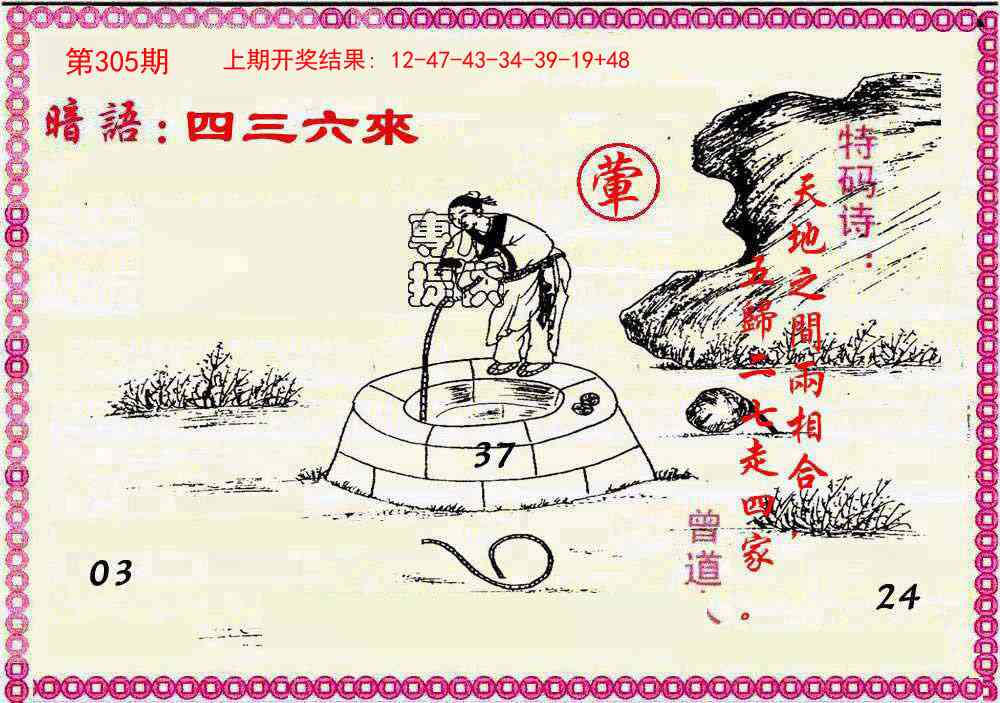 第305期
上期开奖结果：12-47-43-34-39-19+48
暗語：四三六來
葷
特码诗：
天地之間兩相合，
五歸二七走四家。
曾道人
37
03
24